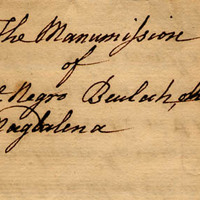 The Manumission
of
Negro Beulah,
Magdalena